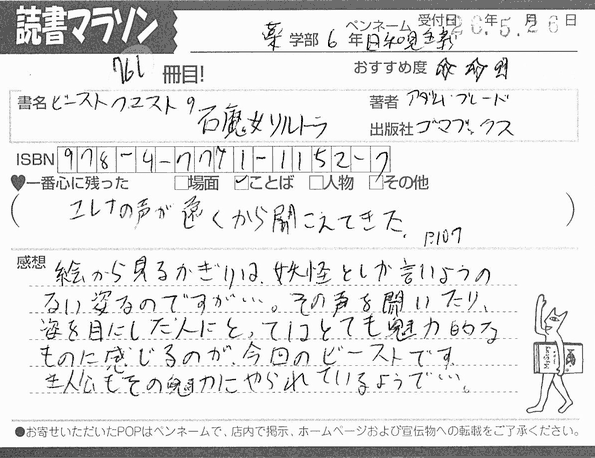 読書マラソン
薬 学部 6 年 ペンネーム 日和見
受付日 20 年 5. 月 26 日
761 冊目!
おすすめ度
書名 ビーストクエスト9
石魔女ソルトラ
著者 アダム・ブレード
出版社 ゴマブックス
ISBN 978-4-7771-1152-7
♥一番心に残った □場面 ☑ことば □人物 □その他
(エレナの声が遠くから聞こえてきた。 P.107)
感想 絵から見るかぎりは、妖怪としか言いようの
ない姿なのですが…。その声を聞いたり、
姿を目にした人にとってはとても魅力的な
ものに感じるのが、今回のビーストです。
主人公もその魅力にやられているようで…。
●お寄せいただいたPOPはペンネームで、店内で掲示、ホームページおよび宣伝物への転載をご了承ください。